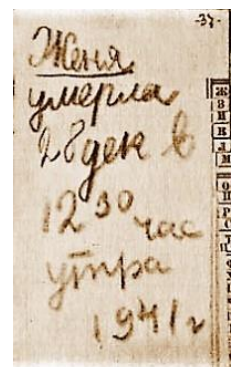 -37-
Женя
умерла
28 дек в
12 30 час
утра
1941 г
Ж
З
И
К
Л
М
О
П
Р
С
Т